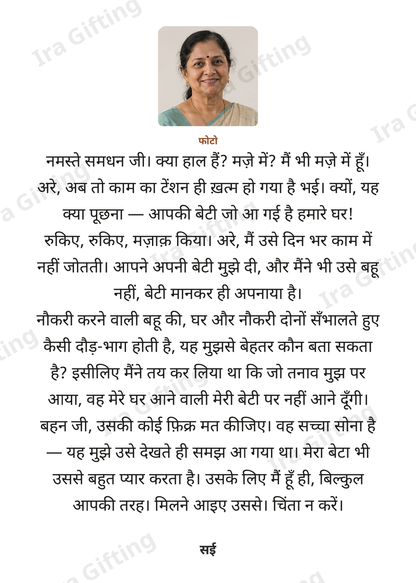 Ira Gifting
Ira Gifting
फोटो
नमस्ते समधन जी। क्या हाल हैं? मज़े में? मैं भी मज़े में हूँ।
अरे, अब तो काम का टेंशन ही ख़त्म हो गया है भई। क्यों, यह
क्या पूछना — आपकी बेटी जो आ गई है हमारे घर!
रुकिए, रुकिए, मज़ाक़ किया। अरे, मैं उसे दिन भर काम में
नहीं जोतती। आपने अपनी बेटी मुझे दी, और मैंने भी उसे बहू
नहीं, बेटी मानकर ही अपनाया है।
नौकरी करने वाली बहू की, घर और नौकरी दोनों सँभालते हुए
कैसी दौड़-भाग होती है, यह मुझसे बेहतर कौन बता सकता
है? इसीलिए मैंने तय कर लिया था कि जो तनाव मुझ पर
आया, वह मेरे घर आने वाली मेरी बेटी पर नहीं आने दूँगी।
बहन जी, उसकी कोई फ़िक्र मत कीजिए। वह सच्चा सोना है
— यह मुझे उसे देखते ही समझ आ गया था। मेरा बेटा भी
उससे बहुत प्यार करता है। उसके लिए मैं हूँ ही, बिल्कुल
आपकी तरह। मिलने आइए उससे। चिंता न करें।
सई
Ira Gifting